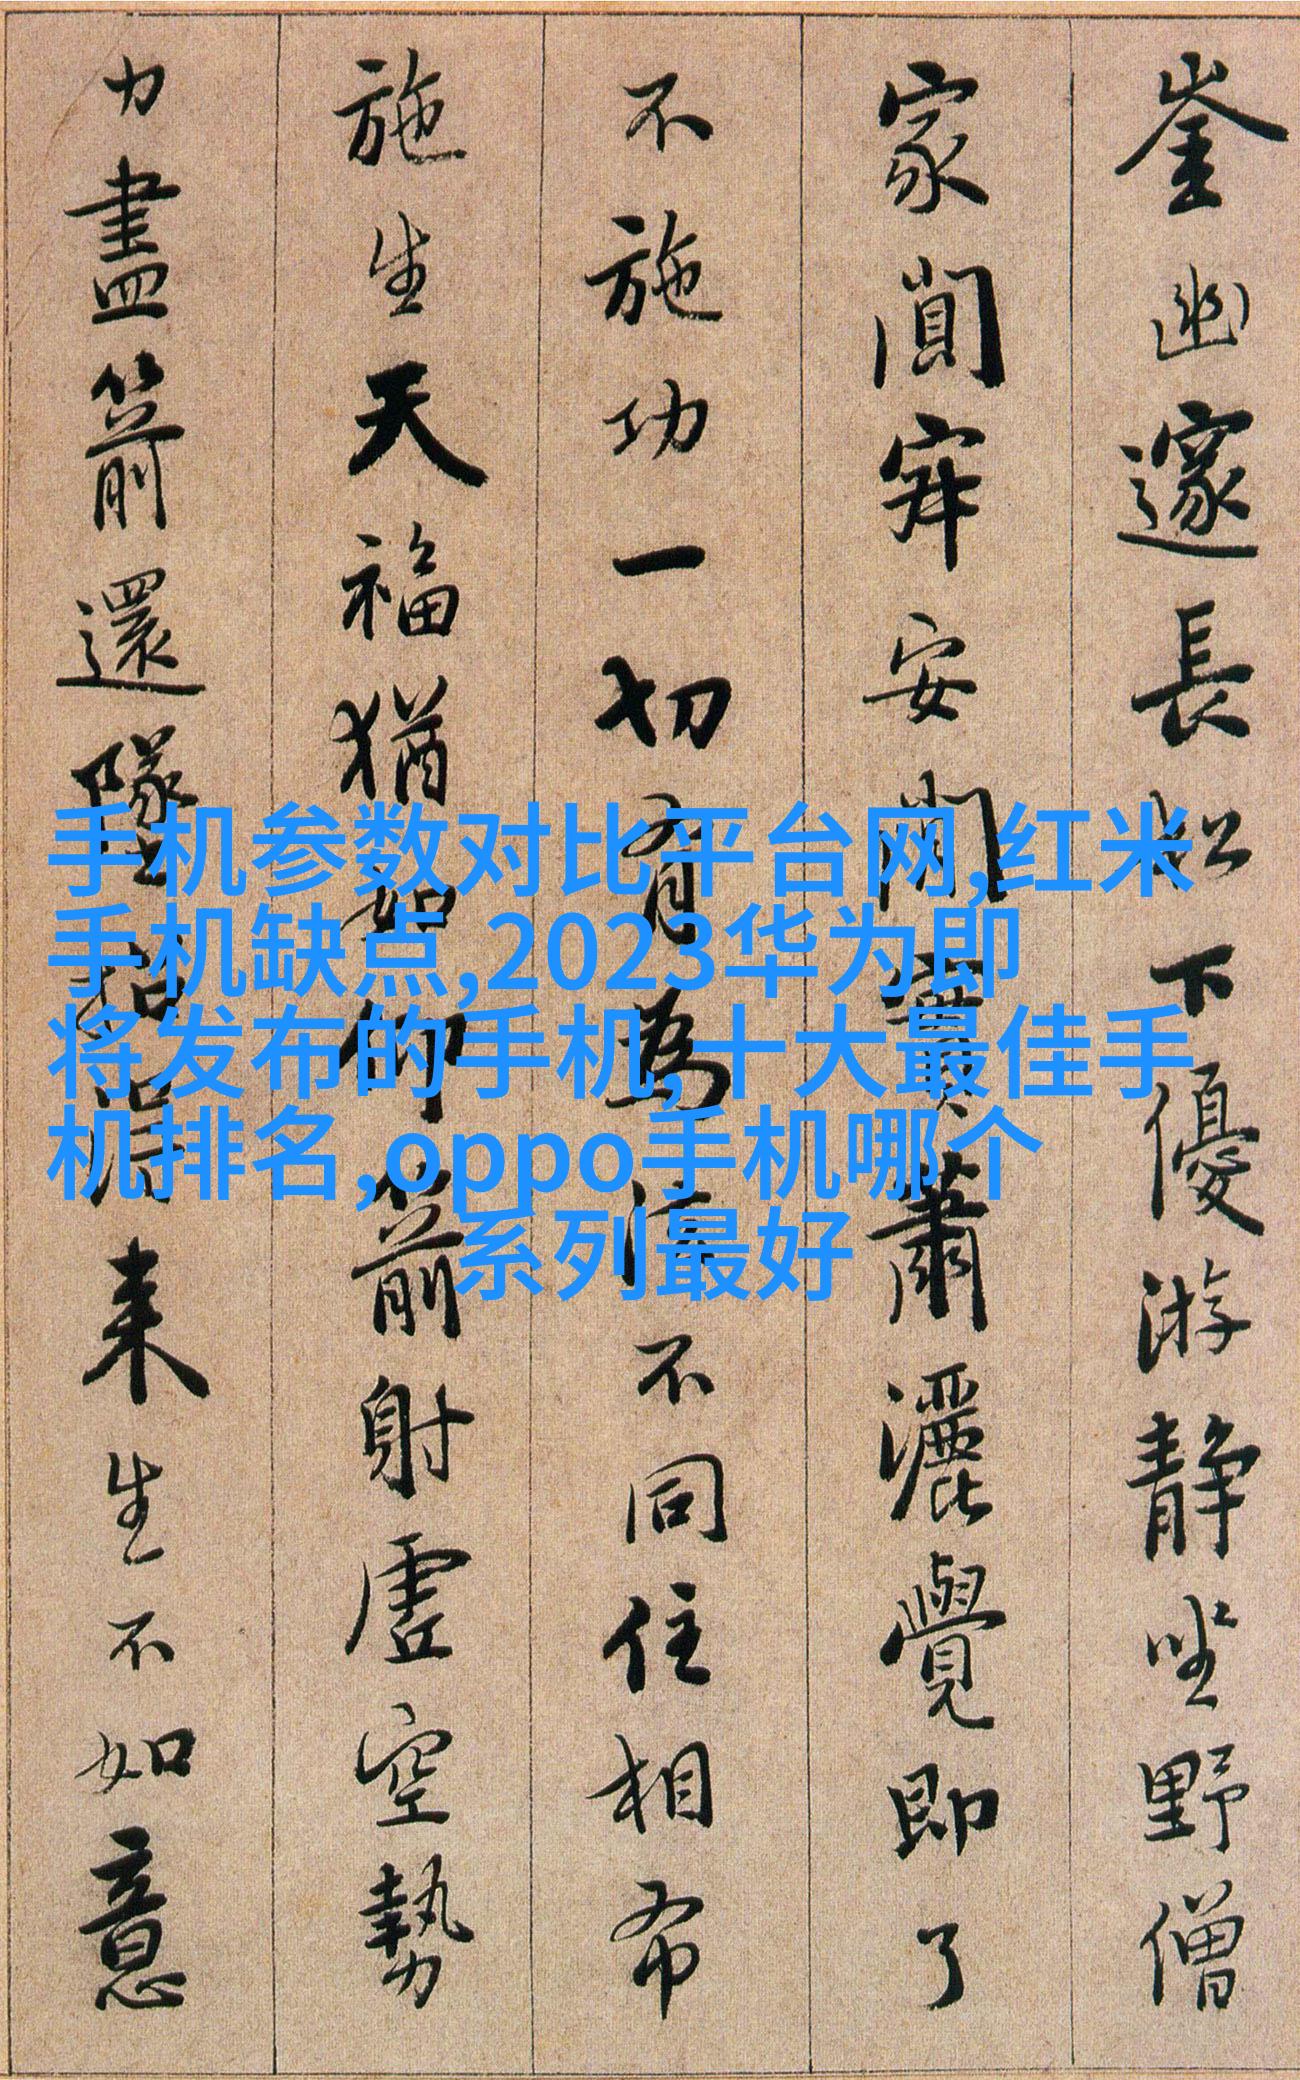 崟幽邃長松下優游靜坐野僧
家闃寂安閑實蕭灑覺即了
不施功一切有為法不同住相布
施生天福猶如仰箭射虛空勢
力盡箭還墜招得來生不如意
手机参数对比平台网,红米
手机缺点,2023华为即
将发布的手机,十大最佳手
机排名,oppo手机哪个
系列最好